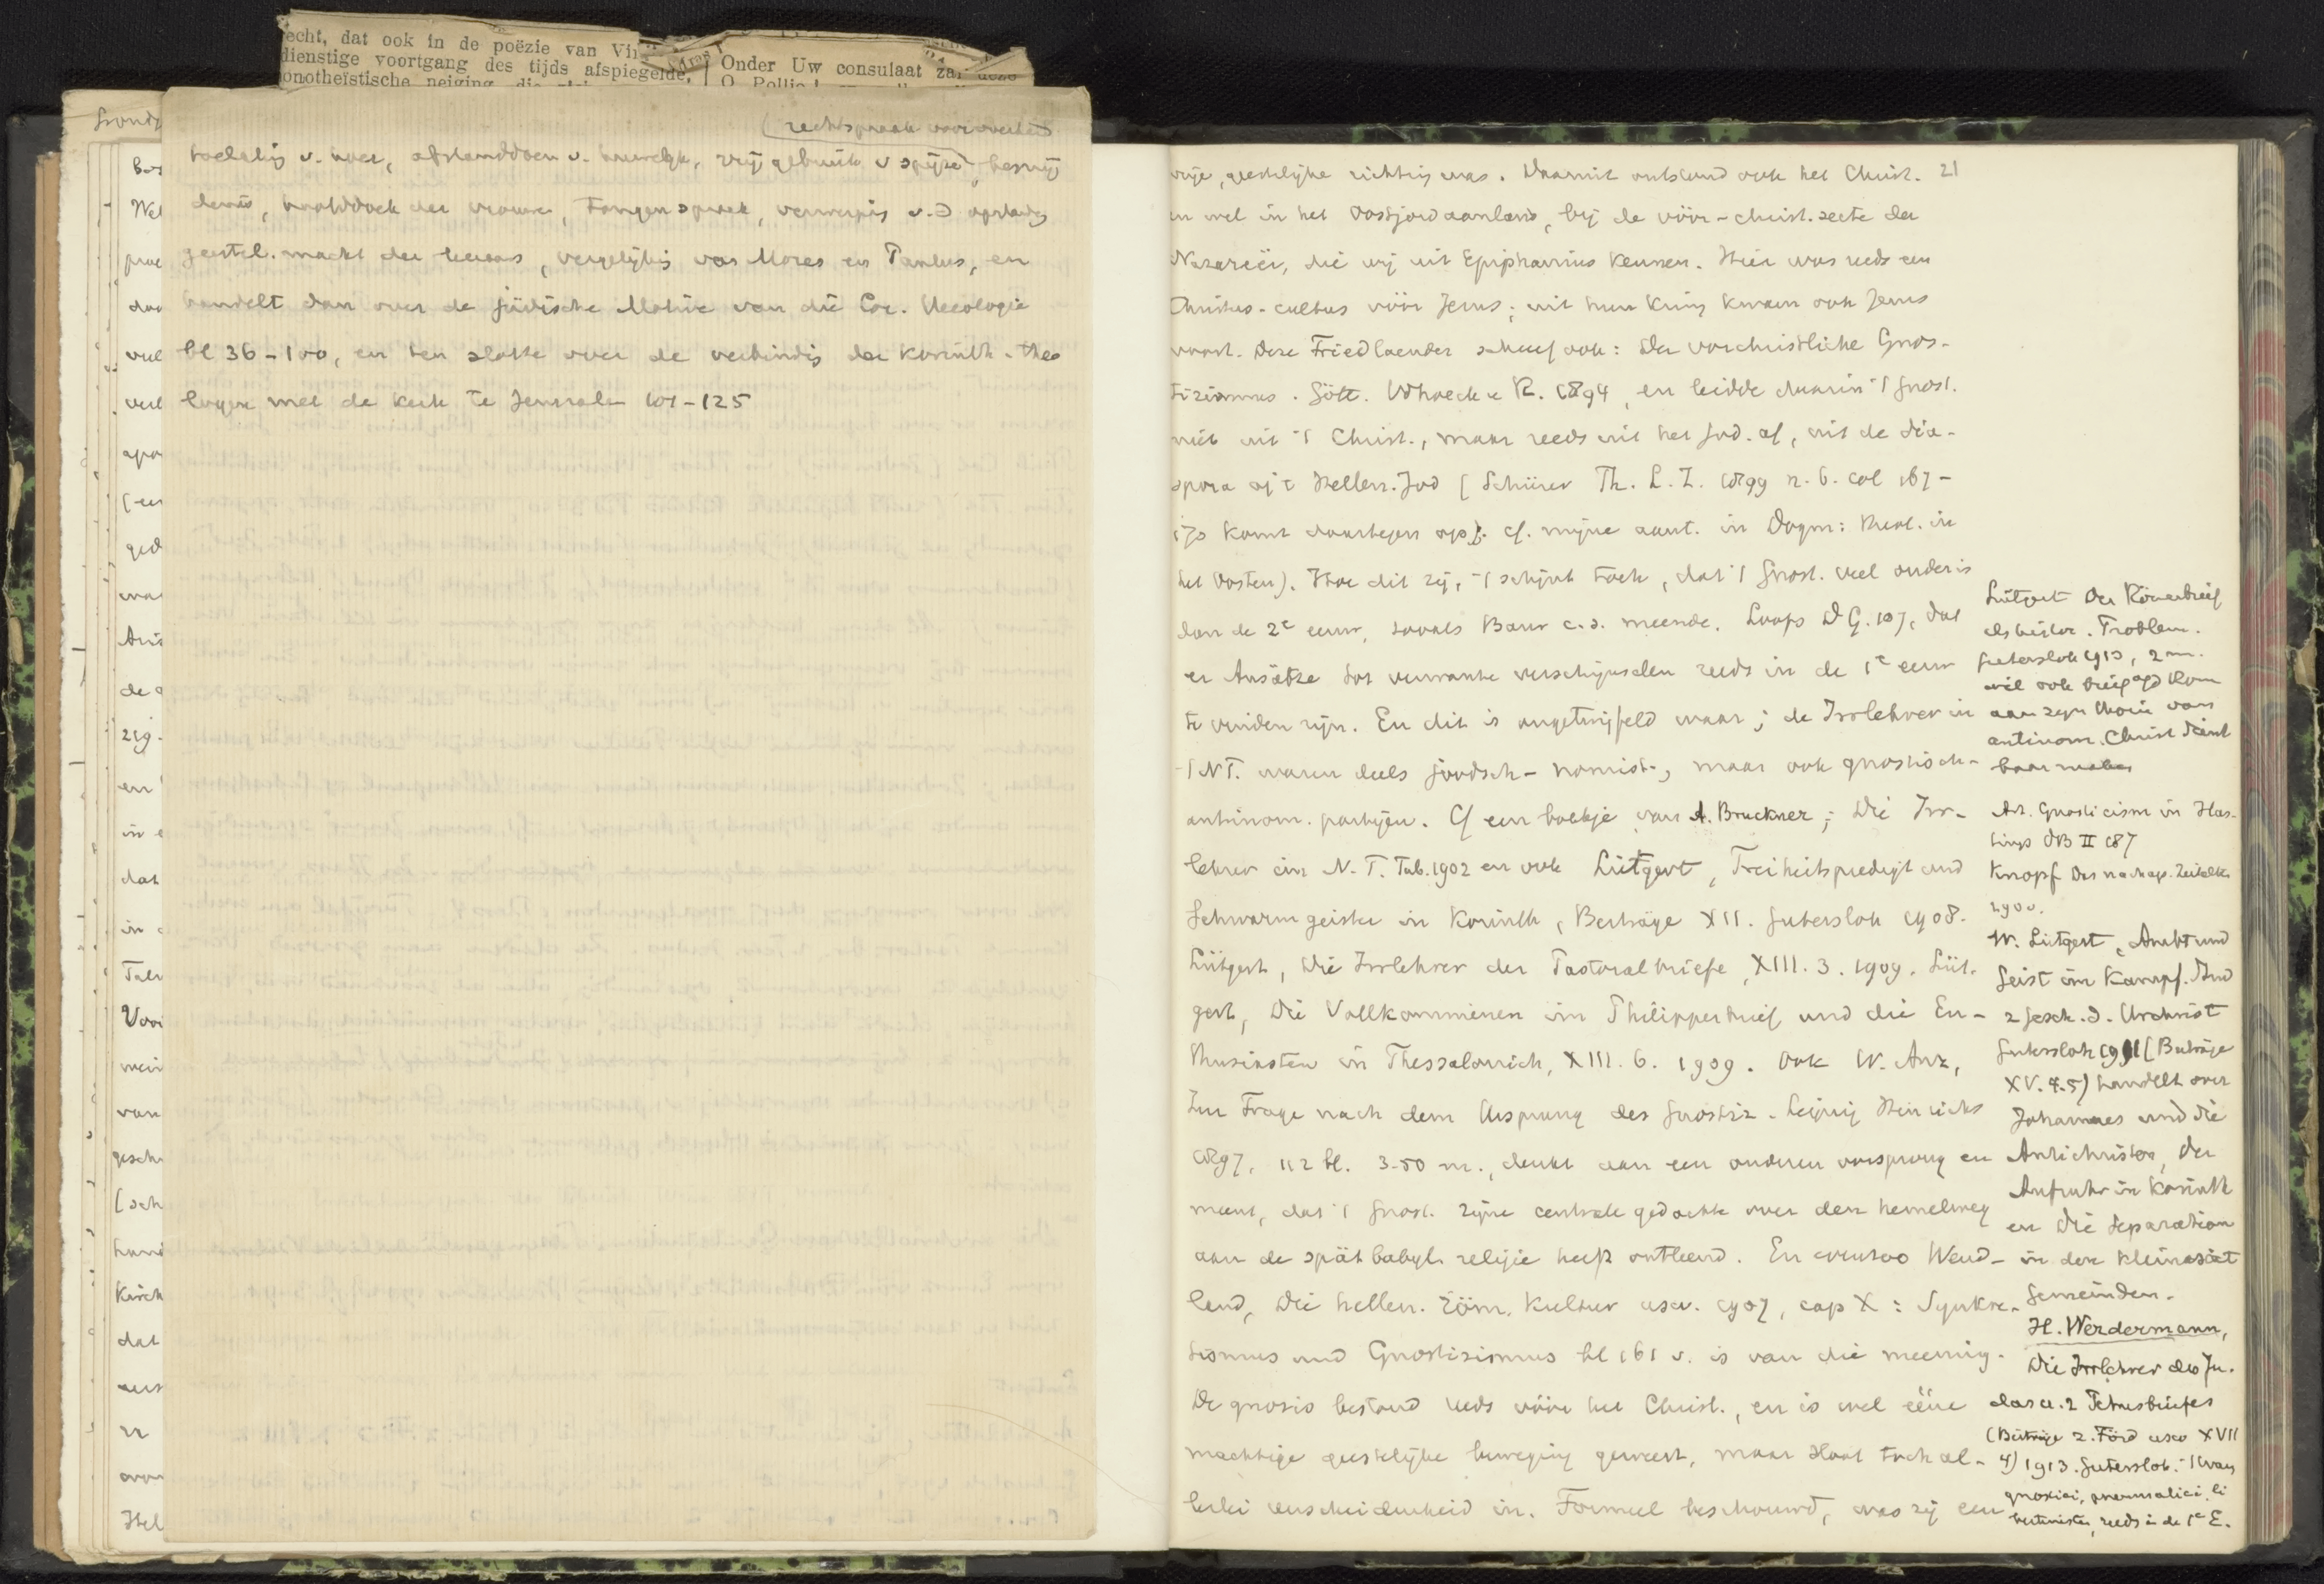 echt, dat ook in de poëzie van Vir
dienstige voortgang des tijds afspiegelde,
onotheïstische neiging, die
Onder Uw consulaat zal deze
O Pollio!
(rechtspraak voor overheid
toelating v. hoer, afstanddoen v. huwelijk, vrij gebruik v spijze, besnij
denis, hoofddoek der vrouwen, tongenspraak, verwerping v.
geestel. macht der leeraars, vergelijking van Mozes en Paulus, en
handelt dan over de jüdische Motive van die Cor. Theologie
bl 36-100, en ten slotte over de verbinding der Korinth. theo
logen met de kerk te Jerusalem 101-125
vrije, geestelijke richting was. Daaruit ontstond ook het Christ. 21
en wel in het Oostjordaanland, bij de vóór-christ. secte der
Nazareër, die wij uit Epiphanius kennen. Hier was reeds een
Christus-cultus vóór Jezus; uit hun kring kwam ook Jezus
voort. Deze Friedlaender schreef ook: Der vorchristliche Gnos-
tizismus. Gött. Vdhoeck u R. 1894, en leidde daarin 't gnost.
niet uit 't Christ., maar reeds uit het Jod. af, uit de dia-
spora v/h Hellen. Jod [Schürer Th. L. Z. 1899 n. 6. col 167-
170 komt daartegen op]. cf. mijne aant. in Dogm: Theol. in
het Oosten). Hoe dit zij, 't schijnt toch, dat 't gnost. veel ouder is
dan de 2e eeuw, zooals Baur c.s. meende. Loofs D G. 107, dat
er Ansätze tot verwante verschijnselen reeds in de 1e eeuw
te vinden zijn. En dit is ongetwijfeld waar; de Irrlehrer in
't NT. waren deels joodsch-nomist., maar ook gnostisch-
antinom. partijen. Cf een boekje van A. Bruckner; Die Irr-
lehrer im N. T. Tub. 1902 en ook Lütgert, Freiheitspredigt und
Schwarmgeister in Korinth, Beiträge XII. Gutersloh 1908.
Lütgert, Die Irrlehrer der Pastoralbriefe, XIII. 3. 1909. Lüt-
gert, Die Vollkommenen im Philipperbrief und die En-
thusiasten in Thessalonich, XIII. 6. 1909. Ook W. Anz,
Zur Frage nach dem Ursprung des Gnostiz. Leipzig Hinrichs
1897, 112 bl. 3-50 m., denkt aan een anderen oorsprong en
meent, dat 't gnost. zijne centrale gedachte over den hemelweg
aan de spätbabyl. religie heeft ontleend. En evenzoo Wend-
land, Die hellen. röm. Kultur usw. 1907, cap X: Synkre-
tismus und Gnostizismus bl 161 v. is van die meening.
De gnosis bestond reeds vóór het Christ., en is wel ééne
machtige geestelijke beweging geweest, maar sloot toch al-
lerlei verscheidenheid in. Formeel beschouwd, was zij een
Lütgert Der Römerbrief
als histor. Problem.
Gutersloh 1913, 2 m.
wil ook brief a/d Rom
aan zijn theorie van
antinom. Christ dienst
baar maken
Art. Gnosticism in Has-
tings DB II 187
Knopf Das nachap. Zeitalter
1900.
W. Lütgert, Amt und
Geist im Kampf. Stud
z Gesch. d. Urchrist
Gutersloh 1911 [Beiträge
XV. 4.5) handelt over
Johannes und die
Antichristen, Der
Aufruhr in Korinth
en Die Separation
in den kleinasiat
Gemeinden.
H. Werdermann,
Die Irrlehrer des Ju-
das u. 2 Petrusbriefes
(Beiträge z. Förd usw XVII
4) 1913. Gutersloh. 't waren
gnostici, pneumatici, li
bertinisten, reeds in de 1e E.